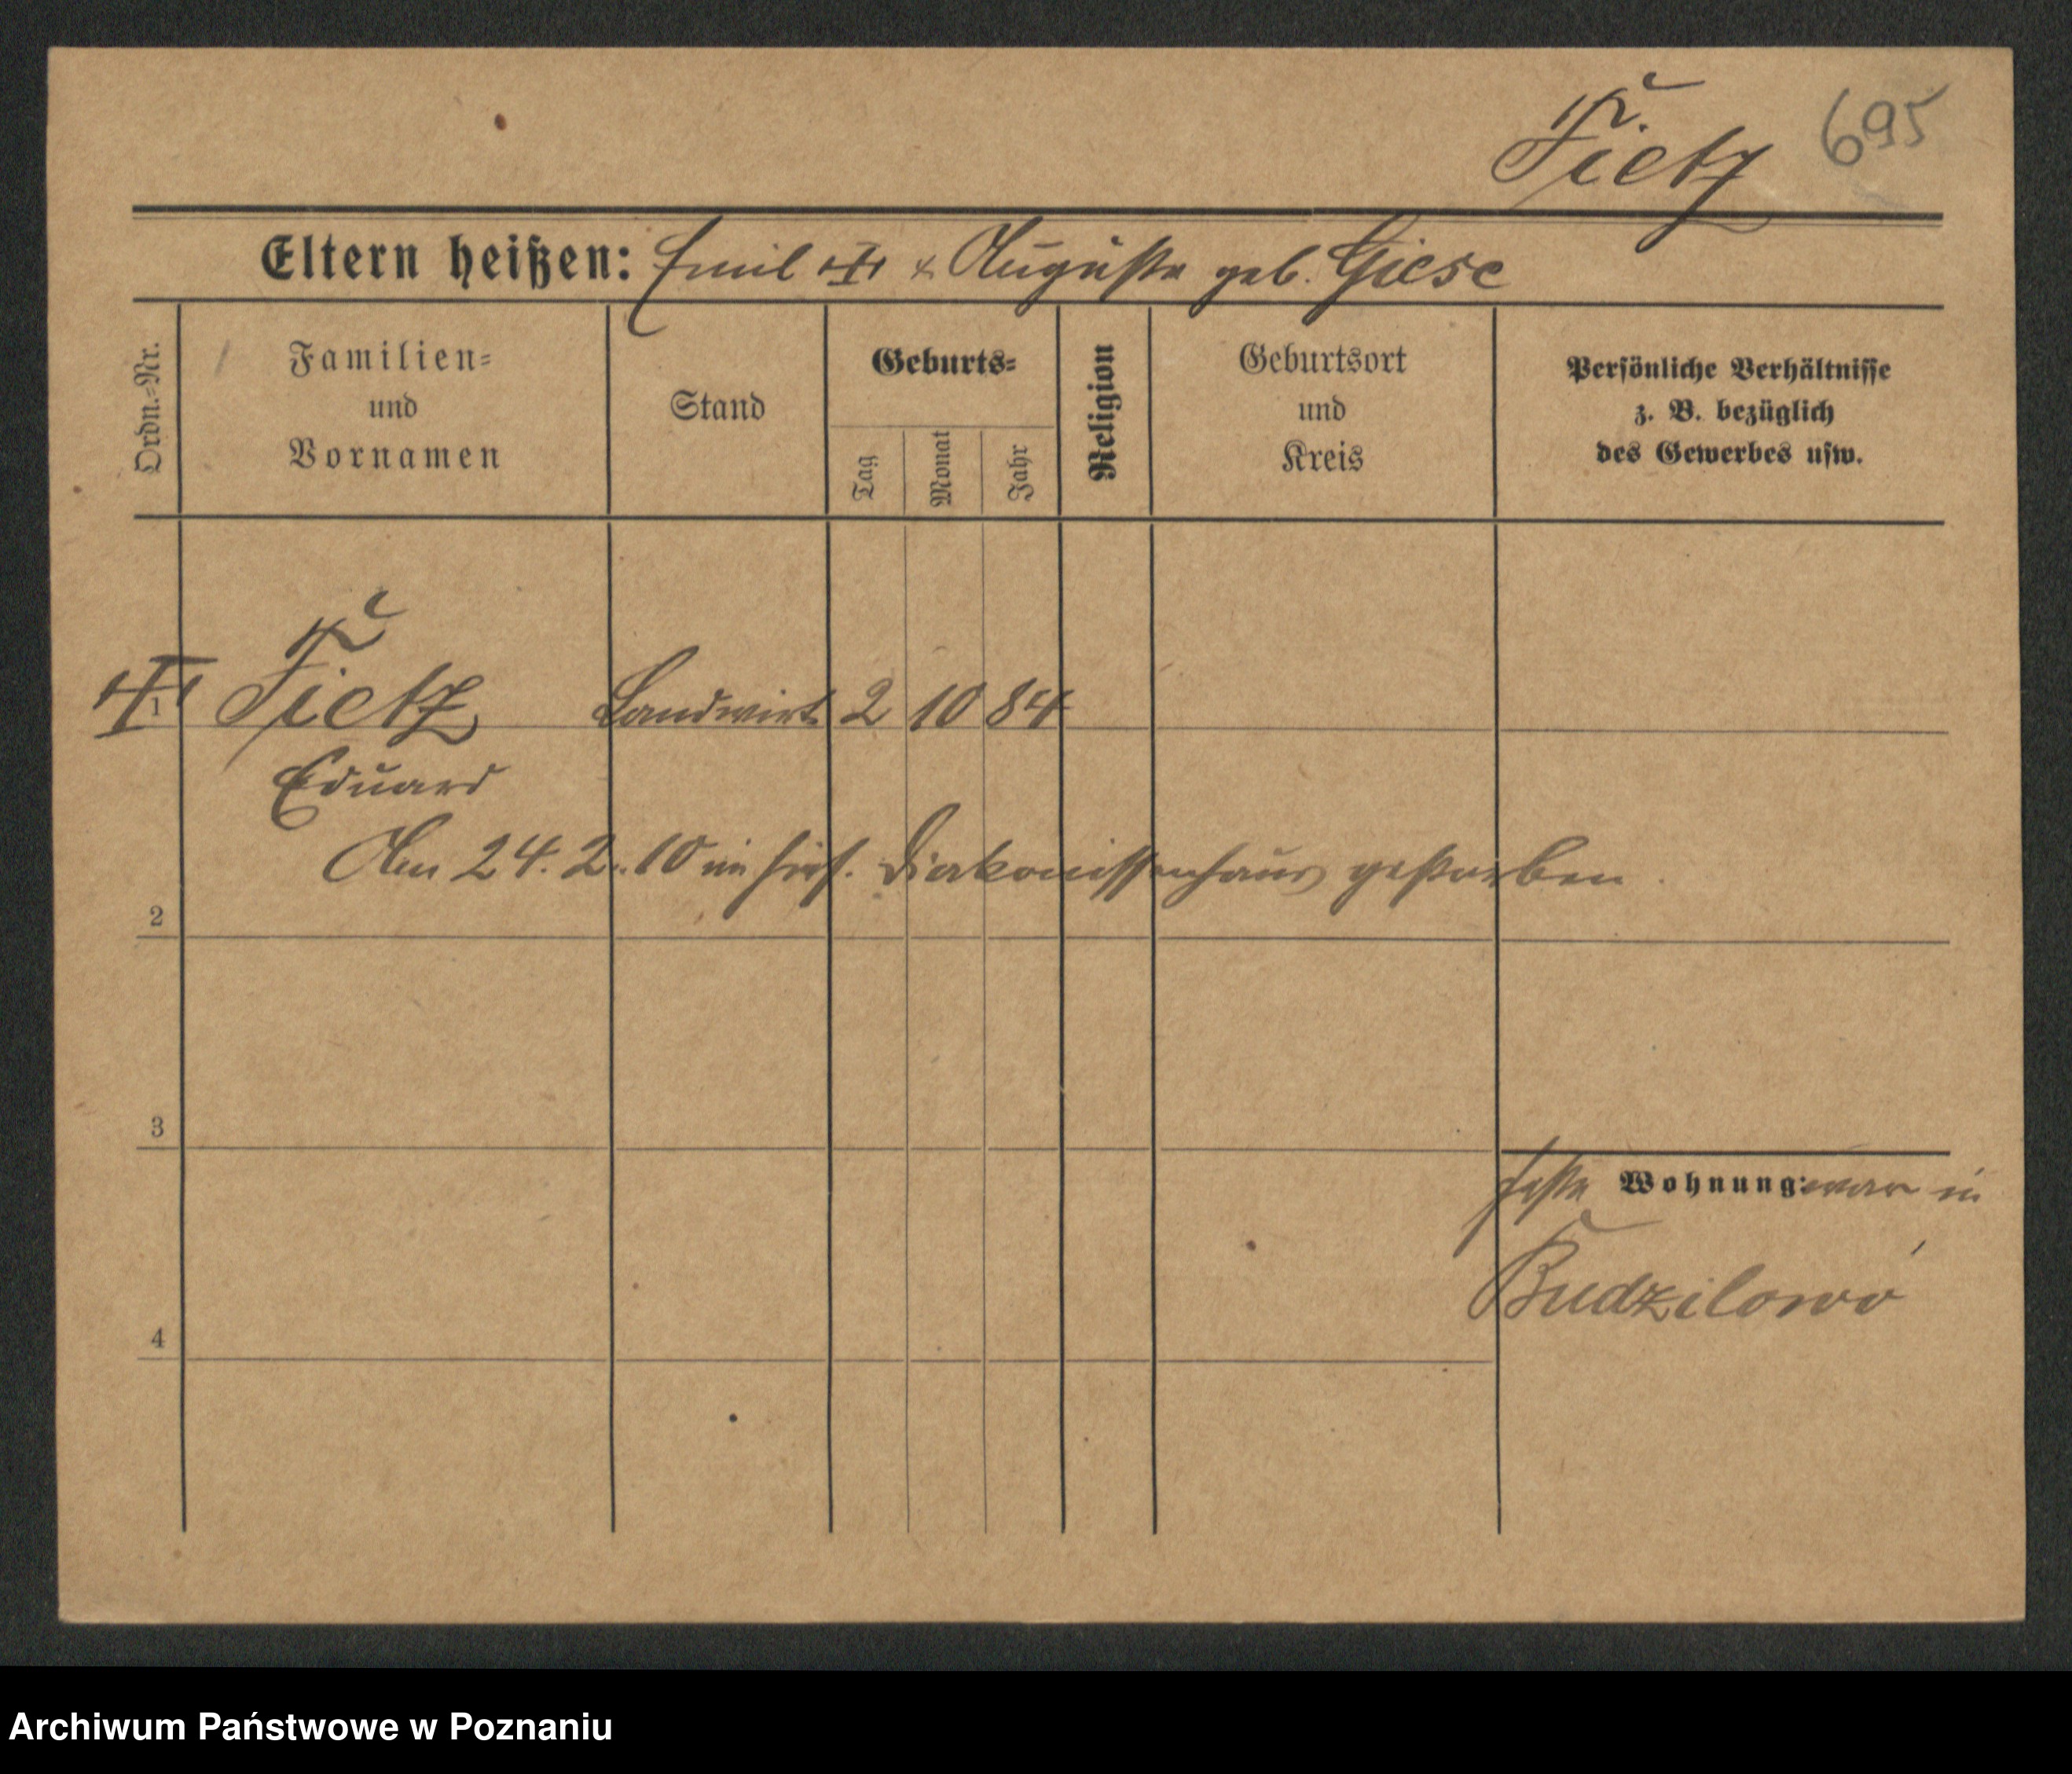 Tietz 695
Eltern heißen: Emil & Auguste geb. Giese
Ordn.-Nr.
Familien-
und
Vornamen
Stand
Geburts-
Tag
Monat
Jahr
Religion
Geburtsort
und
Kreis
Persönliche Verhältnisse
z. B. bezüglich
des Gewerbes usw.
1 Tietz Landwirt 2 10 84
Eduard
Am 24. 2. 10 im hies. Diakonissenhaus gestorben.
2
3
feste Wohnung: war in
Budzilowo
4
Archiwum Państwowe w Poznaniu